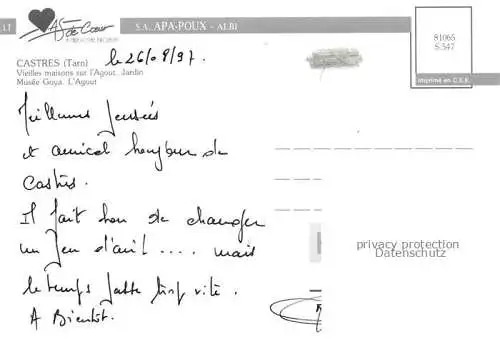 LT
As de Cœur
S.A. APA-POUX - ALBI
81065
S.547
imprimé en C.E.E.
CASTRES (Tarn)
Vieilles maisons sur l'Agout. Jardin
Musée Goya. L'Agout
le 26/08/97.
Meilleures pensées
et amical bonjour de
Castres.
Il fait bon de changer
un peu d'air .... mais
le temps passe trop vite.
A Bientôt.
privacy protection
Datenschutz